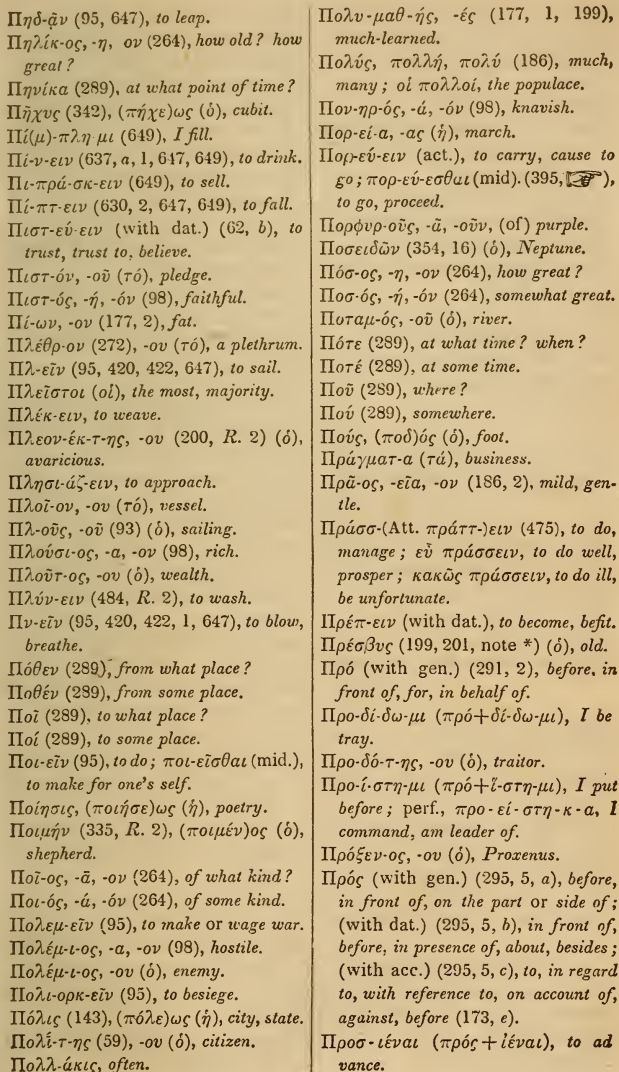 Πηδ-ᾷν (95, 647), to leap.
Πηλίκ-ος, -η, ον (264), how old? how
great?
Πηνίκα (289), at what point of time?
Πῆχυς (342), (πήχε)ως (ὁ), cubit.
Πί(μ)-πλη μι (649), I fill.
Πί-ν-ειν (637, a, 1, 647, 649), to drink.
Πι-πρά-σκ-ειν (649), to sell.
Πί-πτ-ειν (630, 2, 647, 649), to fall.
Πιστ-εύ-ειν (with dat.) (62, b), to
trust, trust to, believe.
Πιστ-όν, -οῦ (τό), pledge.
Πιστ-ός, -ή, -όν (98), faithful.
Πί-ων, -ον (177, 2), fat.
Πλέθρ-ον (272), -ου (τό), a plethrum.
Πλ-εῖν (95, 420, 422, 647), to sail.
Πλεῖστοι (οἱ), the most, majority.
Πλέκ-ειν, to weave.
Πλεον-έκ-τ-ης, -ου (200, R. 2) (ὁ),
avaricious.
Πλησι-άζ-ειν, to approach.
Πλοῖ-ον, -ου (τό), vessel.
Πλ-οῦς, -οῦ (93) (ὁ), sailing.
Πλούσι-ος, -α, -ον (98), rich.
Πλοῦτ-ος, -ου (ὁ), wealth.
Πλύν-ειν (484, R. 2), to wash.
Πν-εῖν (95, 420, 422, 1, 647), to blow,
breathe.
Πόθεν (289), from what place?
Ποθέν (289), from some place.
Ποῖ (289), to what place?
Ποί (289), to some place.
Ποι-εῖν (95), to do; ποι-εῖσθαι (mid.),
to make for one's self.
Ποίησις, (ποιήσε)ως (ἡ), poetry.
Ποιμήν (335, R. 2), (ποιμέν)ος (ὁ),
shepherd.
Ποῖ-ος, -ᾱ, -ον (264), of what kind?
Ποι-ός, -ά, -όν (264), of some kind.
Πολεμ-εῖν (95), to make or wage war.
Πολέμ-ι-ος, -α, -ον (98), hostile.
Πολέμ-ι-ος, -ου (ὁ), enemy.
Πολι-ορκ-εῖν (95), to besiege.
Πόλις (143), (πόλε)ως (ἡ), city, state.
Πολί-τ-ης (59), -ου (ὁ), citizen.
Πολλ-άκις, often.
Πολυ-μαθ-ής, -ές (177, 1, 199),
much-learned.
Πολύς, πολλή, πολύ (186), much,
many; οἱ πολλοί, the populace.
Πον-ηρ-ός, -ά, -όν (98), knavish.
Πορ-εί-α, -ας (ἡ), march.
Πορ-εύ-ειν (act.), to carry, cause to
go; πορ-εύ-εσθαι (mid). (395, ☞),
to go, proceed.
Πορφυρ-οῦς, -ᾶ, -οῦν, (of) purple.
Ποσειδῶν (354, 16) (ὁ), Neptune.
Πόσ-ος, -η, -ον (264), how great?
Ποσ-ός, -ή, -όν (264), somewhat great.
Ποταμ-ός, -οῦ (ὁ), river.
Πότε (289), at what time? when?
Ποτέ (289), at some time.
Ποῦ (289), where?
Πού (289), somewhere.
Πούς, (ποδ)ός (ὁ), foot.
Πράγματ-α (τά), business.
Πρᾶ-ος, -εῖα, -ον (186, 2), mild, gen-
tle.
Πράσσ-(Att. πράττ-)ειν (475), to do,
manage; εὖ πράσσειν, to do well,
prosper; κακῶς πράσσειν, to do ill,
be unfortunate.
Πρέπ-ειν (with dat.), to become, befit.
Πρέσβυς (199, 201, note *) (ὁ), old.
Πρό (with gen.) (291, 2), before, in
front of, for, in behalf of.
Προ-δί-δω-μι (πρό+δί-δω-μι), I be
tray.
Προ-δό-τ-ης, -ου (ὁ), traitor.
Προ-ί-στη-μι (πρό+ἵ-στη-μι), I put
before; perf., προ-εί-στη-κ-α, I
command, am leader of.
Πρόξεν-ος, -ου (ὁ), Proxenus.
Πρός (with gen.) (295, 5, a), before,
in front of, on the part or side of;
(with dat.) (295, 5, b), in front of,
before, in presence of, about, besides;
(with acc.) (295, 5, c), to, in regard
to, with reference to, on account of,
against, before (173, e).
Προσ-ιέναι (πρός+ἰέναι), to ad
vance.